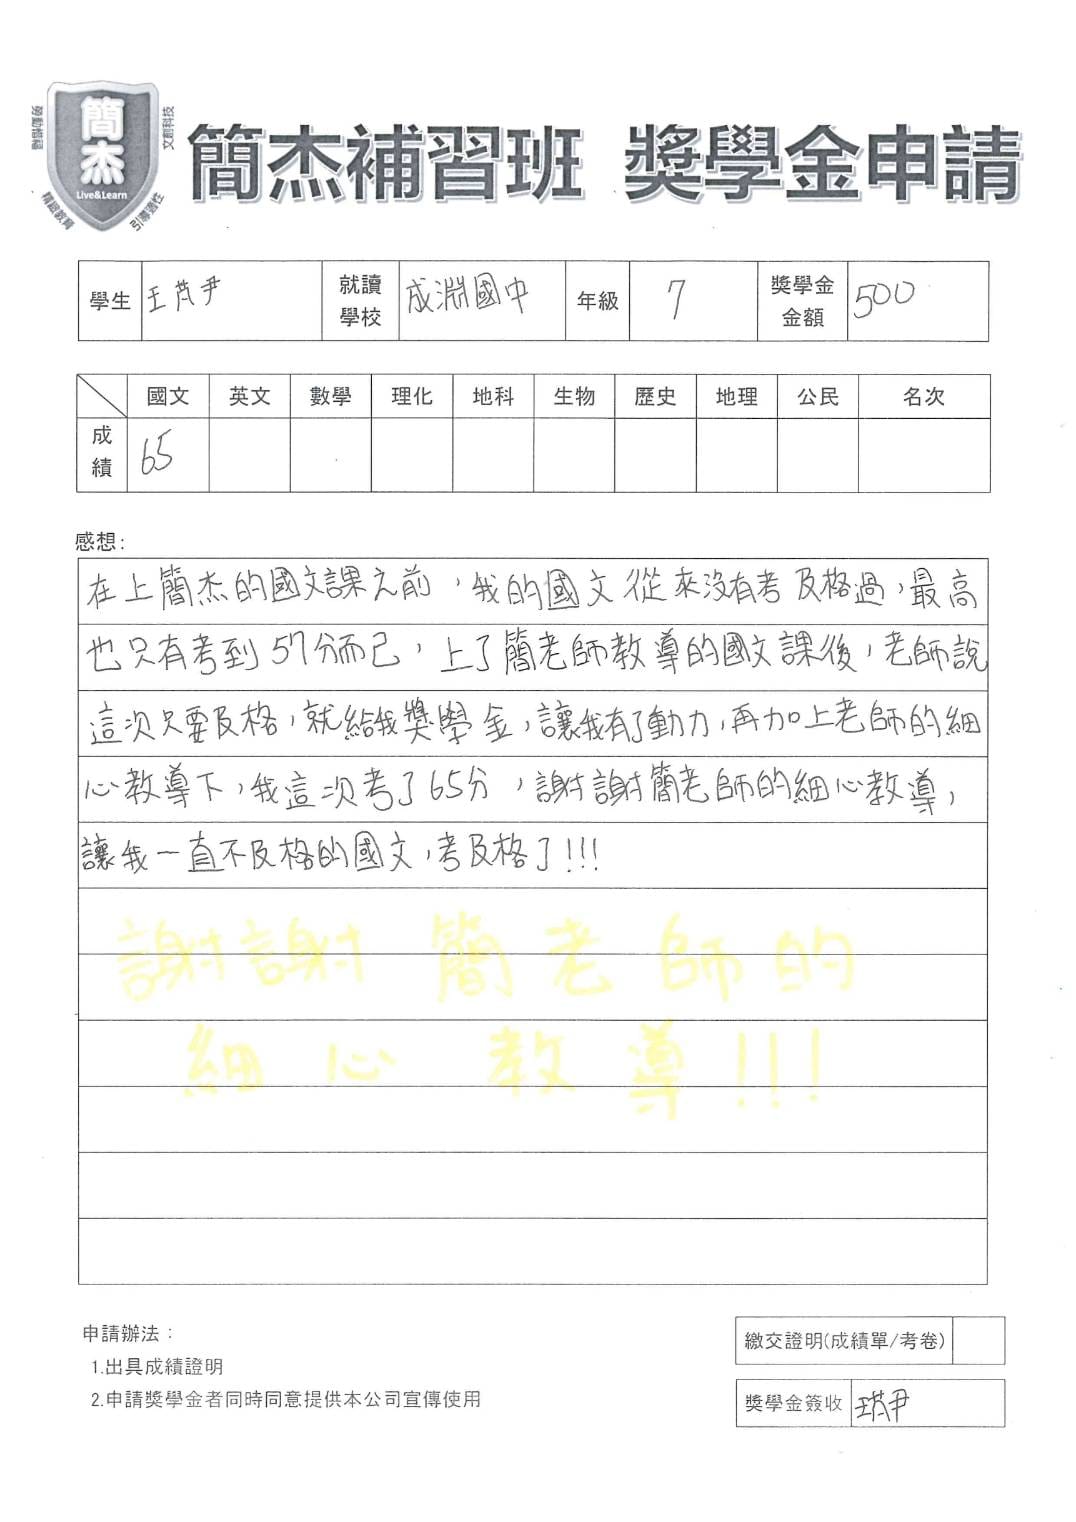 簡杰
Live&Learn
文創科技
精緻教育
引導適性
簡杰補習班 獎學金申請
學生 王 尹 就讀學校 成淵國中 年級 7 獎學金金額 500
國文 英文 數學 理化 地科 生物 歷史 地理 公民 名次
成績 65
感想:
在上簡杰的國文課之前，我的國文從來沒有考及格過，最高
也只有考到57分而已，上了簡老師教導的國文課後，老師說
這次只要及格，就給我獎學金，讓我有了動力，再加上老師的細
心教導下，我這次考了65分，謝謝簡老師的細心教導，
讓我一直不及格的國文，考及格了!!!
謝謝簡老師的
細心教導!!!
申請辦法：
1.出具成績證明
2.申請獎學金者同時同意提供本公司宣傳使用
繳交證明(成績單/考卷)
獎學金簽收 王 尹